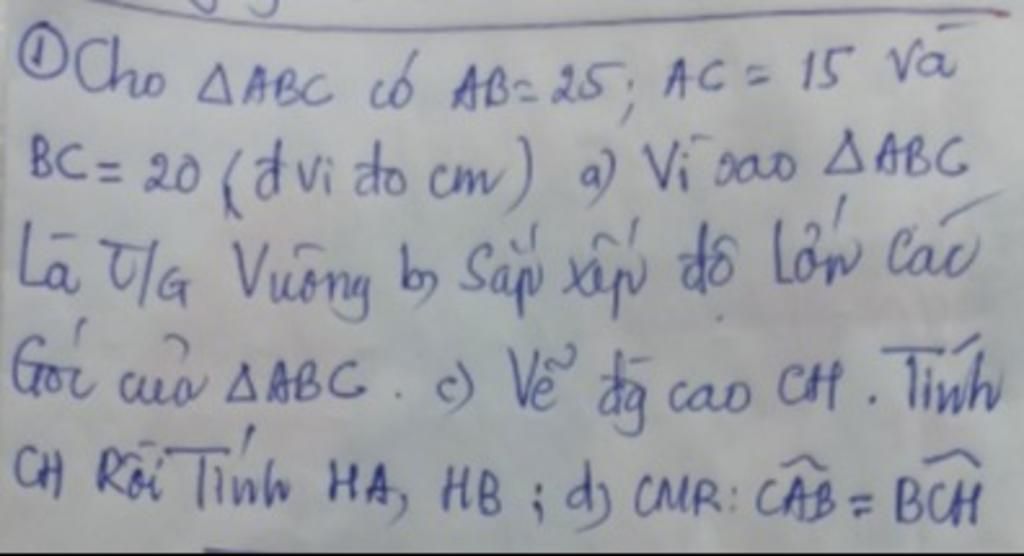 ① Cho △ABC có AB = 25; AC = 15 Và
BC = 20 (đ vi đo cm) a) Vì sao △ABC
Là T/G Vuông b) Sắp xếp độ lớn các
Góc của △ABC. c) Vẽ đg cao CH. Tính
CH Rồi Tính HA, HB; d) CMR: \widehat{CAB} = \widehat{BCH}